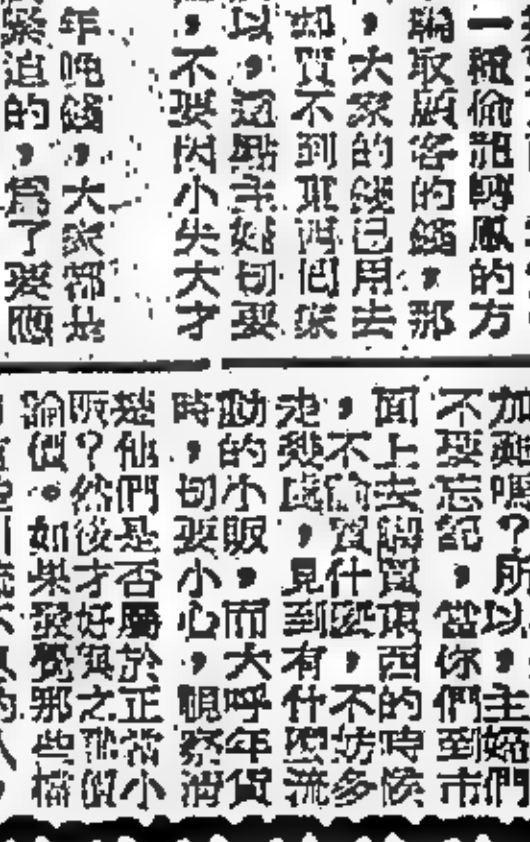 一種偷龍轉鳳的方
取顧客的錢，那
，大家的錢已用去
買不到東西回家
以，這點主婦切要
，不要因小失大才
年晚錢，大家都是
緊迫的，為了要應
加強嗎？所以，主婦們
不要忘記，當你們到市
面上去購買東西的時候
，不論買什麼，不妨多
走幾處，見到有什麼流
動的小販，而大呼年貨
時，切要小心，觀察清
楚他們是否屬於正當小
販？然後才好與之議價
論價。如果發覺那些檔